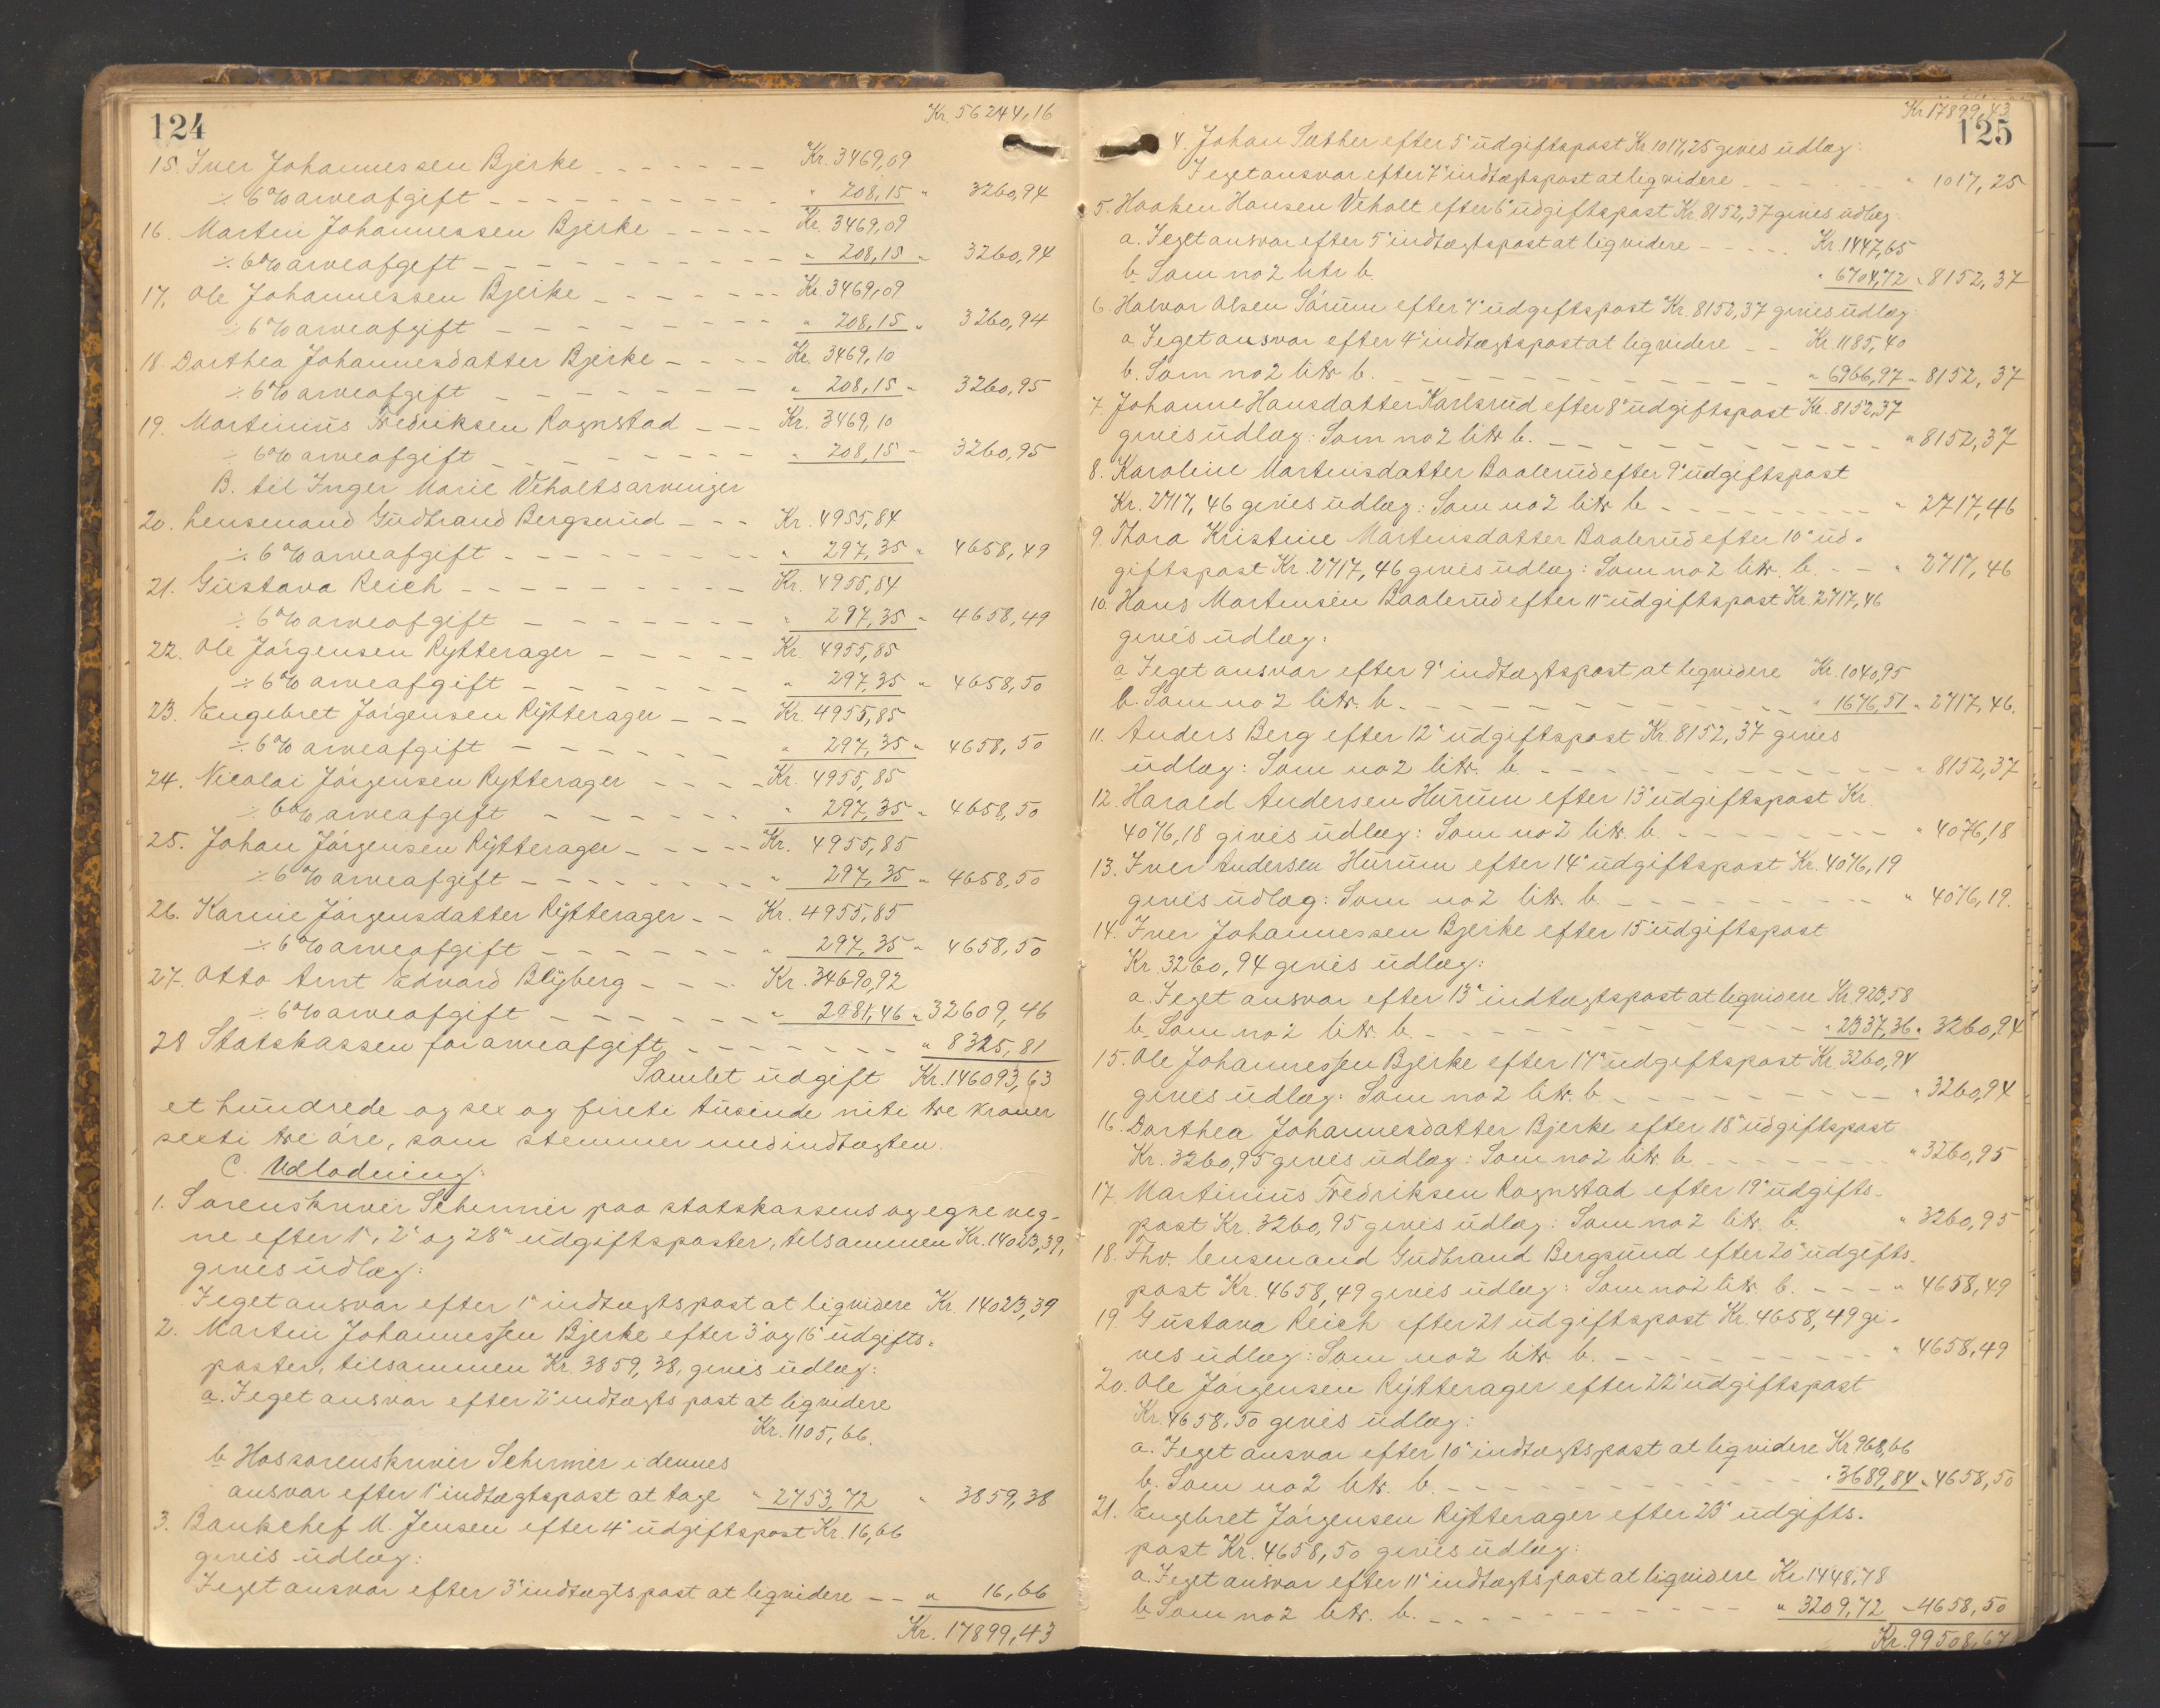 124
Kr. 56244,16
15. Iver Johannessen Bjerke - - - - - - Kr. 3469,09
÷ 6 % arveafgift - - - - - - - - - " 208,15 " 3260,94
16. Martin Johannessen Bjerke - - - - - Kr. 3469,09
÷ 6 % arveafgift - - - - - - - - - " 208,15 " 3260,94
17. Ole Johannessen Bjerke - - - - - - Kr. 3469,09
÷ 6 % arveafgift - - - - - - - - - " 208,15 " 3260,94
18 Dorthea Johannesdatter Bjerke - - - - Kr. 3469,10
÷ 6 % arveafgift - - - - - - - - " 208,15 " 3260,95
19. Martinius Fredriksen Rognstad - - - Kr. 3469,10
÷ 6 % arveafgift - - - - - - - - " 208,15 " 3260,95
B. til Inger Marie Veholts arvinger
20. Lensmand Gudbrand Bergsund - - - Kr. 4955,84
÷ 6 % arveafgift - - - - - - - - " 297,35 " 4658,49
21. Gustava Reich - - - - - - - - - Kr. 4955,84
÷ 6 % arveafgift - - - - - - - " 297,35 " 4658,49
22. Ole Jørgensen Rytterager - - - - - Kr. 4955,85
÷ 6 % arveafgift - - - - - - - " 297,35 " 4658,50
23. Engebret Jørgensen Rytterager - - - Kr. 4955,85
÷ 6 % arveafgift - - - - - - - " 297,35 " 4658,50
24. Nicolai Jørgensen Rytterager - - - - Kr. 4955,85
÷ 6 % arveafgift - - - - - - " 297,35 " 4658,50
25. Johan Jørgensen Rytterager - - - - - Kr. 4955,85
÷ 6 % arveafgift - - - - - - - - " 297,35 " 4658,50
26. Karine Jørgensdatter Rytterager - - Kr. 4955,85
÷ 6 % arveafgift - - - - - - - " 297,35 " 4658,50
27. Otto Arnt Edvard Blyberg - - - - Kr. 34690,92
÷ 6 % arveafgift - - - - - - " 2081,46 " 32609,46
28 Statskassen for arveafgift - - - - - - - " 8325,81
Samlet udgift Kr. 146093,63
et hundrede og sex og firti tusinde niti tre kroner
sexti tre øre, som stemmer med indtægten.
C. Udlodning:
1. Sorenskriver Schirmer paa statskassens og egne veg-
ne efter 1', 2' og 28' udgiftsposter, tilsammen Kr. 14023,39,
gives udlæg:
I eget ansvar efter 1' indtægtspost at liqvidere Kr. 14023,39
2. Martin Johannessen Bjerke efter 3' og 16' udgifts-
poster, tilsammen Kr. 3859,38, gives udlæg:
a. I eget ansvar efter 2' indtægtspost at liqvidere
Kr. 1105,66.
b Hos sorenskriver Schirmer i dennes
ansvar efter 1' indtægtspost at tage " 2753,72 " 3859,38
3. Bankchef M. Jensen efter 4' udgiftspost Kr. 16,66
gives udlæg:
I eget ansvar efter 3' indtægtspost at liqvidere - - " 16,66
Kr. 17899,43
125
Kr 17899,43
4. Johan Sæther efter 5' udgiftspost Kr 1017,25 gives udlæg:
I eget ansvar efter 7' indtægtspost at liqvidere - - - - - " 1017,25
5. Haaken Hansen Veholt efter 6' udgiftspost Kr. 8152,37 gives udlæg
a. I eget ansvar efter 5' indtægtspost at liqvidere - - - - Kr. 1447,65
b Som no 2 litr b. " 6704,72 " 8152,37
6. Halvor Olsen Sørum efter 7' udgiftspost Kr. 8152,37 gives udlæg
a I eget ansvar efter 4' indtægtspost at liqvidere - - Kr. 1185,40
b. Som no 2 litr b. - - - - - - - - - - - - " 6966,97 " 8152,37
7. Johanne Hansdatter Karlsrud efter 8' udgiftspost Kr. 8152,37
gives udlæg: Som no 2 litr b. - - - - - - - - - - - " 8152,37
8. Karoline Martinsdatter Baalerud efter 9' udgiftspost
Kr. 2717,46 gives udlæg: Som no 2 litr b - - - - - - - - " 2717,46
9. Thora Kristine Martinsdatter Baalerud efter 10' ud-
giftspost Kr. 2717,46 gives udlæg: Som no 2 litr. b. - - - " 2717,46
10. Hans Martinsen Baalerud efter 11' udgiftspost Kr. 2717,46
gives udlæg:
a I eget ansvar efter 9' indtægtspost at liqvidere Kr. 1040,95
b. Som no 2 litr. b. - - - - - - - - - - - " 1676,51 " 2717,46.
11. Anders Berg efter 12' udgiftspost Kr. 8152,37 gives
udlæg: Som no 2 litr. b. - - - - - - - - - - - - " 8152,37
12. Harald Andersen Hurum efter 13' udgiftspost Kr.
4076,18 gives udlæg: Som no 2 litr. b. - - - - - - - - " 4076,18
13. Iver Andersen Hurum efter 14' udgiftspost Kr. 4076,19
gives udlæg: Som no 2 litr. b. - - - - - - - - - - " 4076,19.
14. Iver Johannessen Bjerke efter 15' udgiftspost
Kr. 3260,94 gives udlæg:
a. I eget ansvar efter 13' indtægtspost at liqvidere Kr. 923,58
b. Som no 2 litr. b. - - - - - - - - - - " 2337,36 " 3260,94
15. Ole Johannessen Bjerke efter 17' udgiftspost Kr. 3260,94
gives udlæg: Som no 2 litr. b - - - - - - - - - - " 3260,94
16. Dorthea Johannesdatter Bjerke efter 18' udgiftspost
Kr. 3260,95 gives udlæg: Som no 2 litr. b - - - - - - - " 3260,95
17. Martinius Fredriksen Rognstad efter 19' udgifts-
post Kr. 3260,95 gives udlæg: Som no 2 litr. b. " 3260,95
18. Fhv. lensmand Gudbrand Bergsund efter 20' udgifts-
post Kr. 4658,49 gives udlæg: Som no 2 litr. b. - - - " 4658,49
19 Gustava Reich efter 21 udgiftspost Kr. 4658,49 gi-
ves udlæg: Som no 2 litr. b. - - - - - - - - - " 4658,49
20. Ole Jørgensen Rytterager efter 22' udgiftspost
Kr. 4658,50 gives udlæg:
a. I eget ansvar efter 10' indtægtspost at liqvidere Kr 968,66
b. Som no 2 litr. b. - - - - - - - - - - " 3689,84 " 4658,50
21. Engebret Jørgensen Rytterager efter 23' udgifts-
post Kr. 4658,50 gives udlæg:
a. I eget ansvar efter 11' indtægtspost at liqvidere Kr 1448,78
b Som no 2 litr. b. - - - - - - - - - " 3209,72 " 4658,50
Kr. 99508,67